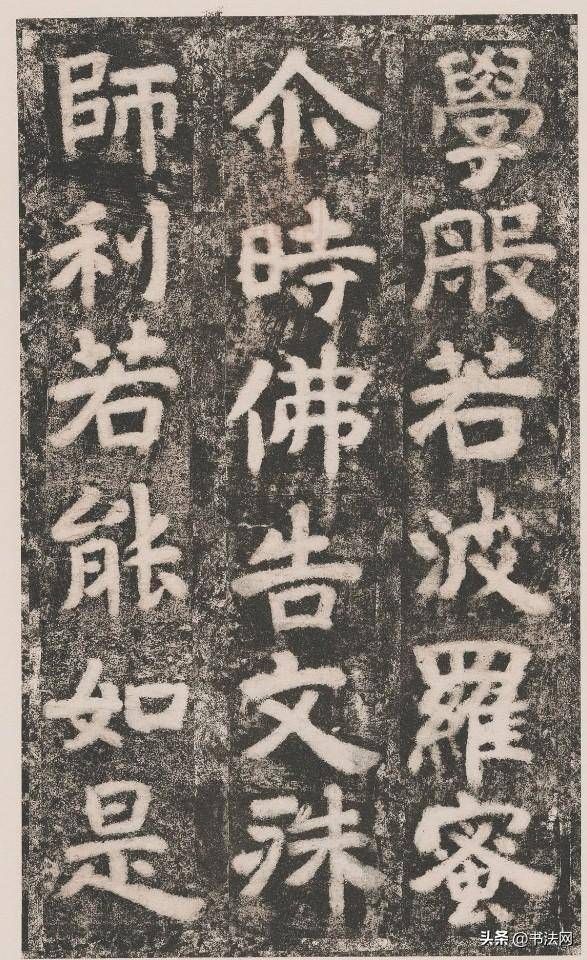 學般若波羅蜜
尒時佛告文殊
師利若能如是
头条@书法网